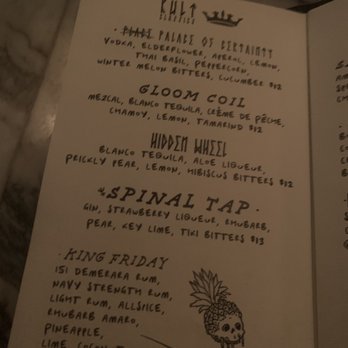 KULT
CLASSICS
PLACE PALACE OF CERTAINTY
VODKA, ELDERFLOWER, APEROL, LEMON,
THAI BASIL, PEPPERCORN,
WINTER MELON BITTERS, CUCUMBER $12
GLOOM COIL
MEZCAL, BLANCO TEQUILA, CRÈME DE PÊCHE,
CHAMOY, LEMON, TAMARIND $12
HIDDEN WHEEL
BLANCO TEQUILA, ALOE LIQUEUR,
PRICKLY PEAR, LEMON, HIBISCUS BITTERS $12
SPINAL TAP
GIN, STRAWBERRY LIQUEUR, RHUBARB,
PEAR, KEY LIME, TIKI BITTERS $13
KING FRIDAY
151 DEMERARA RUM,
NAVY STRENGTH RUM,
LIGHT RUM, ALLSPICE,
RHUBARB AMARO,
PINEAPPLE,
LIME,